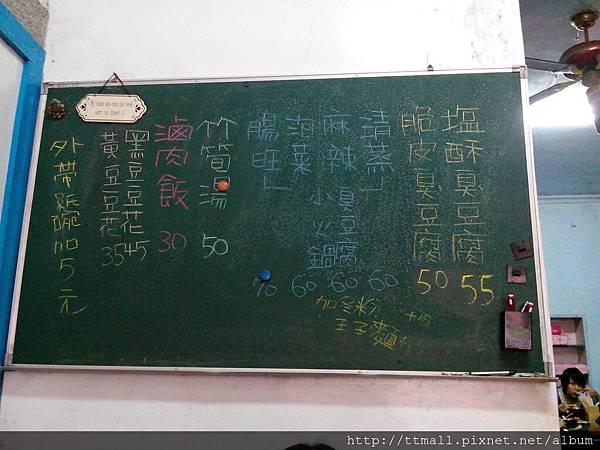 塩酥臭豆腐 55
脆皮臭豆腐 50
清蒸 60
麻辣 臭豆腐 小火鍋 60
泡菜 60
腸旺 70
加冬粉 +10
王子麵
竹筍湯 50
滷肉飯 30
黑豆豆花 45
黃豆豆花 35
外帶紙碗加5元
http://ttmall.pixnet.net/album